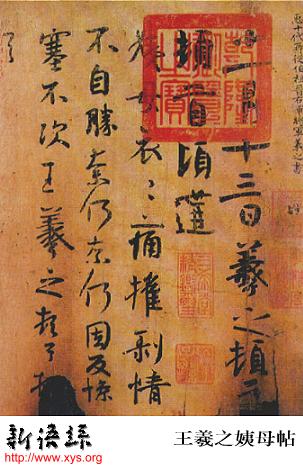 十一月十三日羲之頓首
頓首頃遘
姨母哀哀痛摧剝情
不自勝奈何奈何因反慘
塞不次王羲之頓首頓
新语丝
www.xys.org
王羲之姨母帖